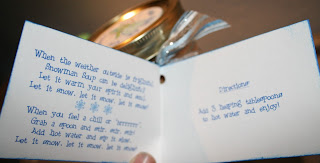 When the weather outside is frightful
Snowman Soup can be delightful
Let it warm your spirit and soul
Let it snow, let it snow, let it snow!
When you feel a chill or "brrrrrrr"
Grab a spoon and stir, stir, stir!
Add hot water and sip it slow
Let it snow, let it snow, let it snow!
Directions:
Add 3 heaping tablespoons
to hot water and enjoy!